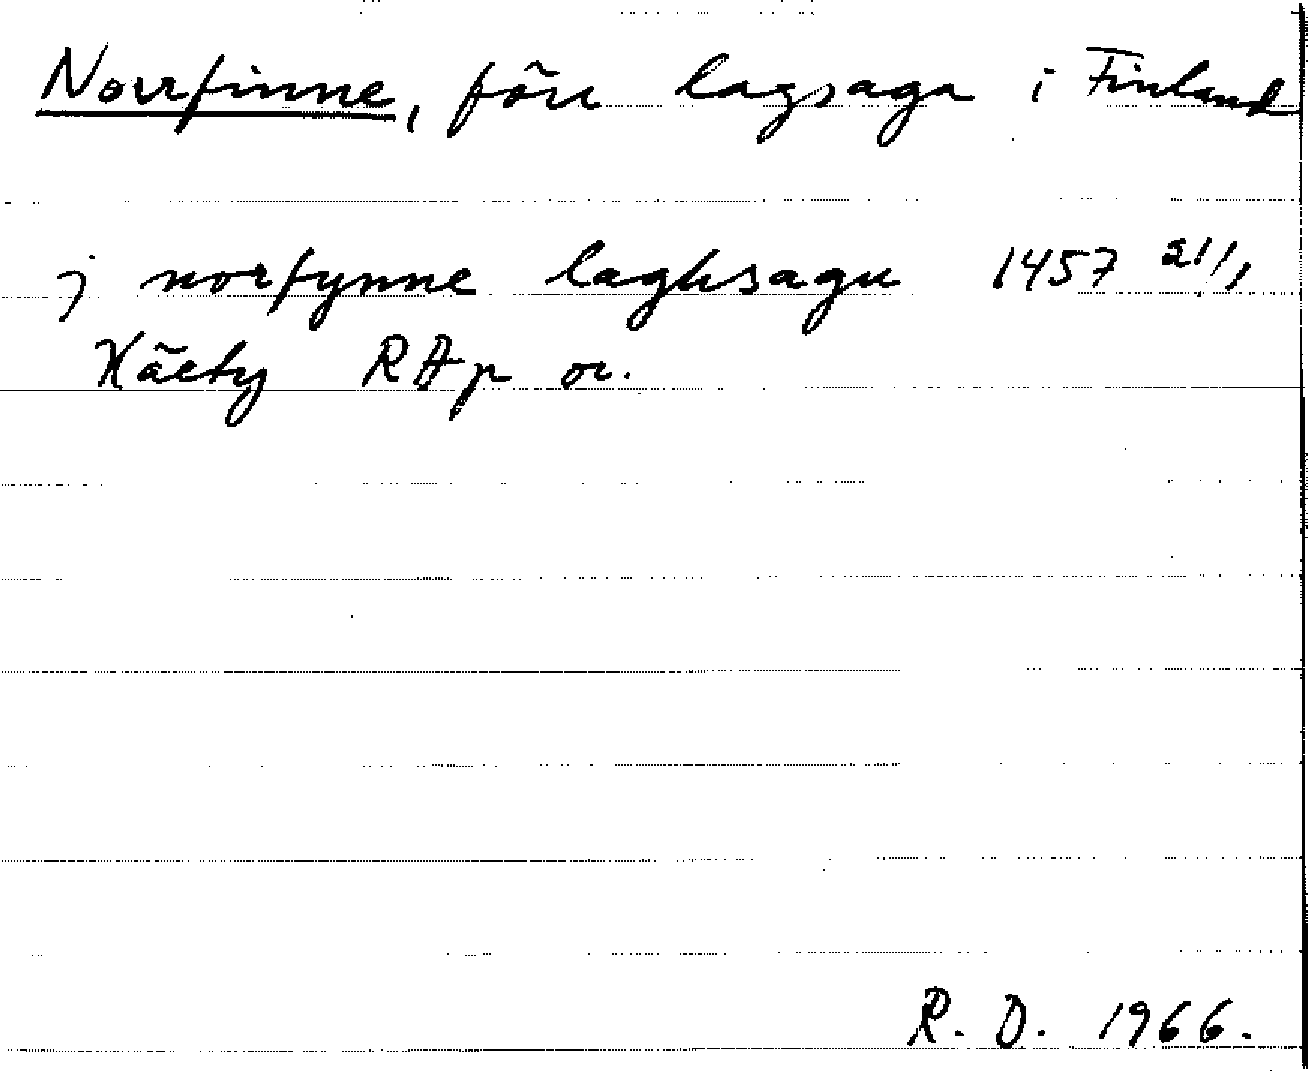 Norrfinne, förr lagsaga i Finland
j norfynne laghsagu 1457 21/1
Häæty RAp or.
R. D. 1966.